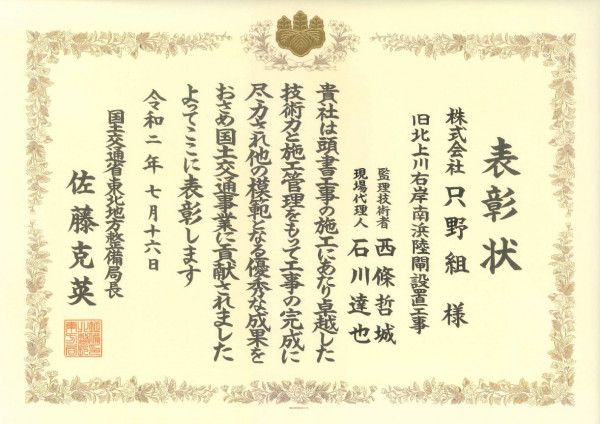 表彰状
株式会社 只野組 様
旧北上川右岸南浜陸閘設置工事
監理技術者 西條哲城
現場代理人 石川達也
貴社は頭書工事の施工にあたり卓越した
技術力と施工管理をもって工事の完成に
尽力され他の模範となる優秀な成果を
おさめ国土交通事業に貢献されました
よってここに表彰します
令和二年七月十六日
国土交通省東北地方整備局長
佐藤克英